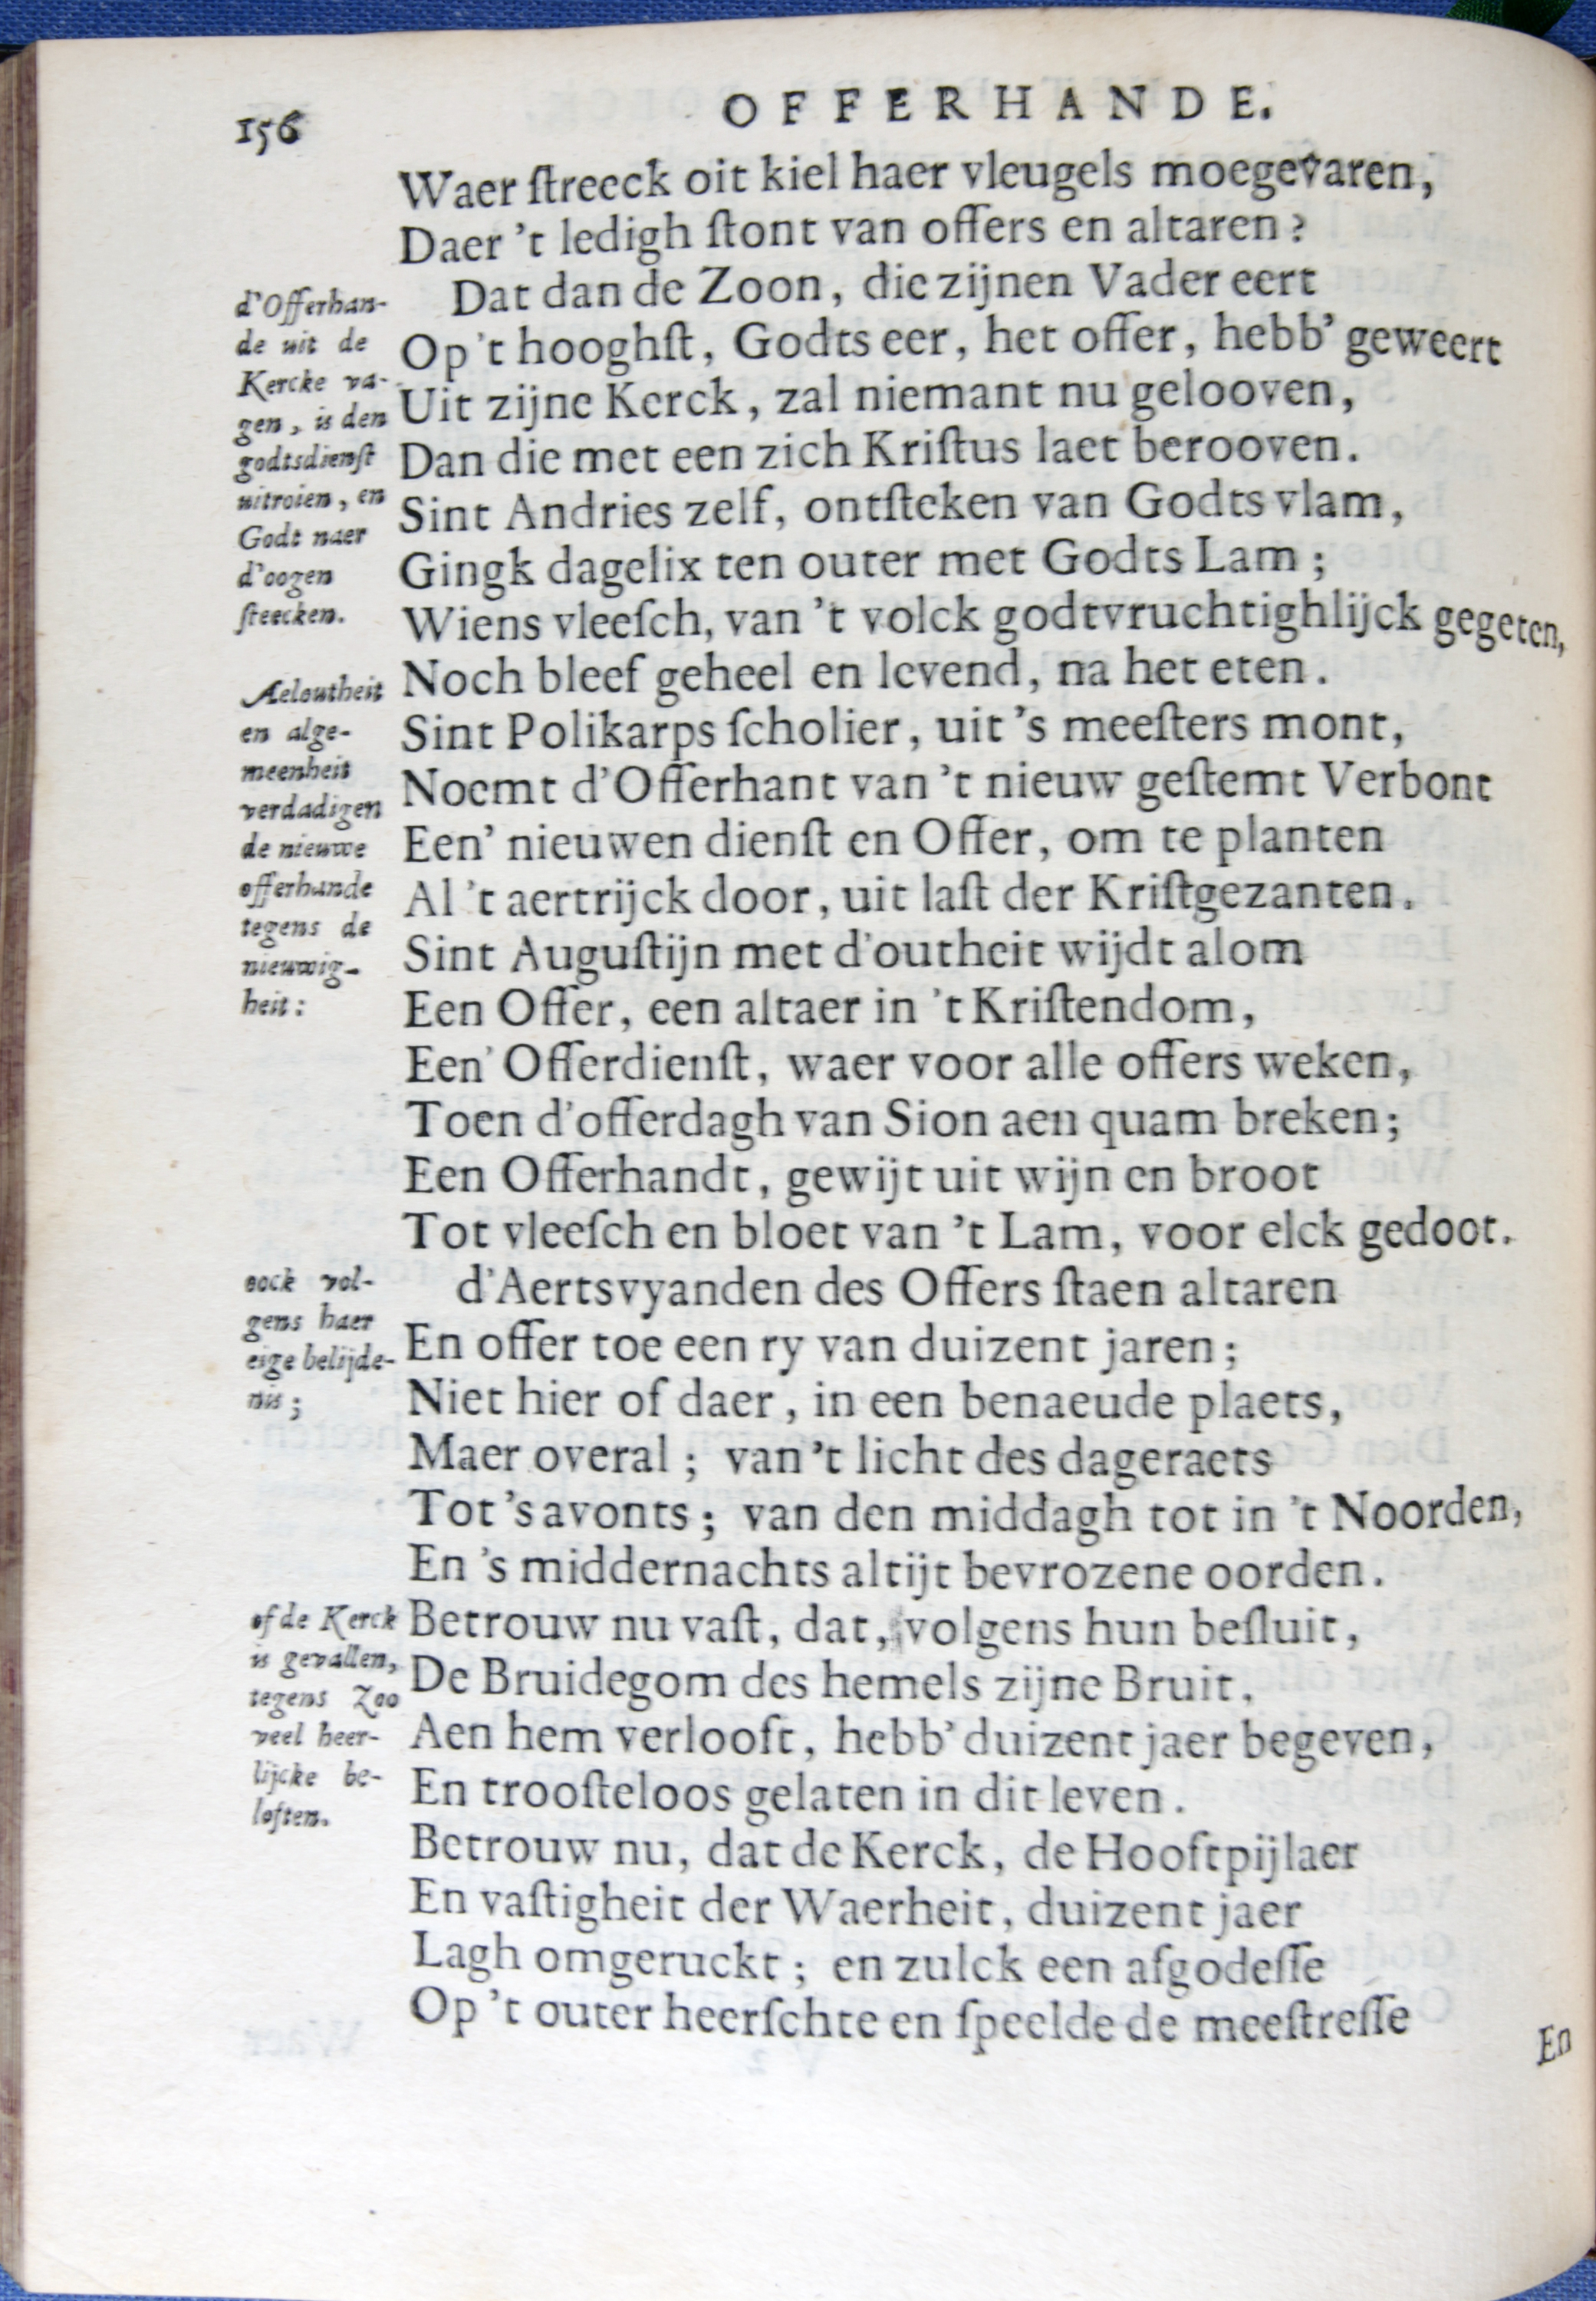 156
OFFERHANDE.
Waer ſtreeck oit kiel haer vleugels moegevaren,
Daer 't ledigh ſtont van offers en altaren?
Dat dan de Zoon, die zijnen Vader eert
Op 't hooghſt, Godts eer, het offer, hebb' geweert
Uit zijne Kerck, zal niemant nu gelooven,
Dan die met een zich Kriſtus laet berooven.
Sint Andries zelf, ontſteken van Godts vlam,
Gingk dagelix ten outer met Godts Lam;
Wiens vleeſch, van 't volck godtvruchtighlijck gegeten,
Noch bleef geheel en levend, na het eten.
Sint Polikarps ſcholier, uit 's meeſters mont,
Noemt d'Offerhant van 't nieuw geſtemt Verbont
Een' nieuwen dienſt en Offer, om te planten
Al 't aertrijck door, uit laſt der Kriſtgezanten.
Sint Auguſtijn met d'outheit wijdt alom
Een Offer, een altaer in 't Kriſtendom,
Een' Offerdienſt, waer voor alle offers weken,
Toen d'offerdagh van Sion aen quam breken;
Een Offerhandt, gewijt uit wijn en broot
Tot vleeſch en bloet van 't Lam, voor elck gedoot.
d'Aertsvyanden des Offers ſtaen altaren
En offer toe een ry van duizent jaren;
Niet hier of daer, in een benaeude plaets,
Maer overal; van 't licht des dageraets
Tot 's avonts; van den middagh tot in 't Noorden,
En 's middernachts altijt bevrozene oorden.
Betrouw nu vaſt, dat, volgens hun beſluit,
De Bruidegom des hemels zijne Bruit,
Aen hem verlooft, hebb' duizent jaer begeven,
En trooſteloos gelaten in dit leven.
Betrouw nu, dat de Kerck, de Hooftpijlaer
En vaſtigheit der Waerheit, duizent jaer
Lagh omgeruckt; en zulck een afgodeſſe
Op 't outer heerſchte en ſpeelde de meeſtreſſe
En
d'Offerhan-
de uit de
Kercke va-
gen, is den
godtsdienſt
uitroien, en
Godt naer
d'oogen
ſteecken.
Aeloutheit
en alge-
meenheit
verdadigen
de nieuwe
offerhande
tegens de
nieuwig-
heit:
oock vol-
gens haer
eige belijde-
nis;
of de Kerck
is gevallen,
tegens Zoo
veel heer-
lijcke be-
loften.